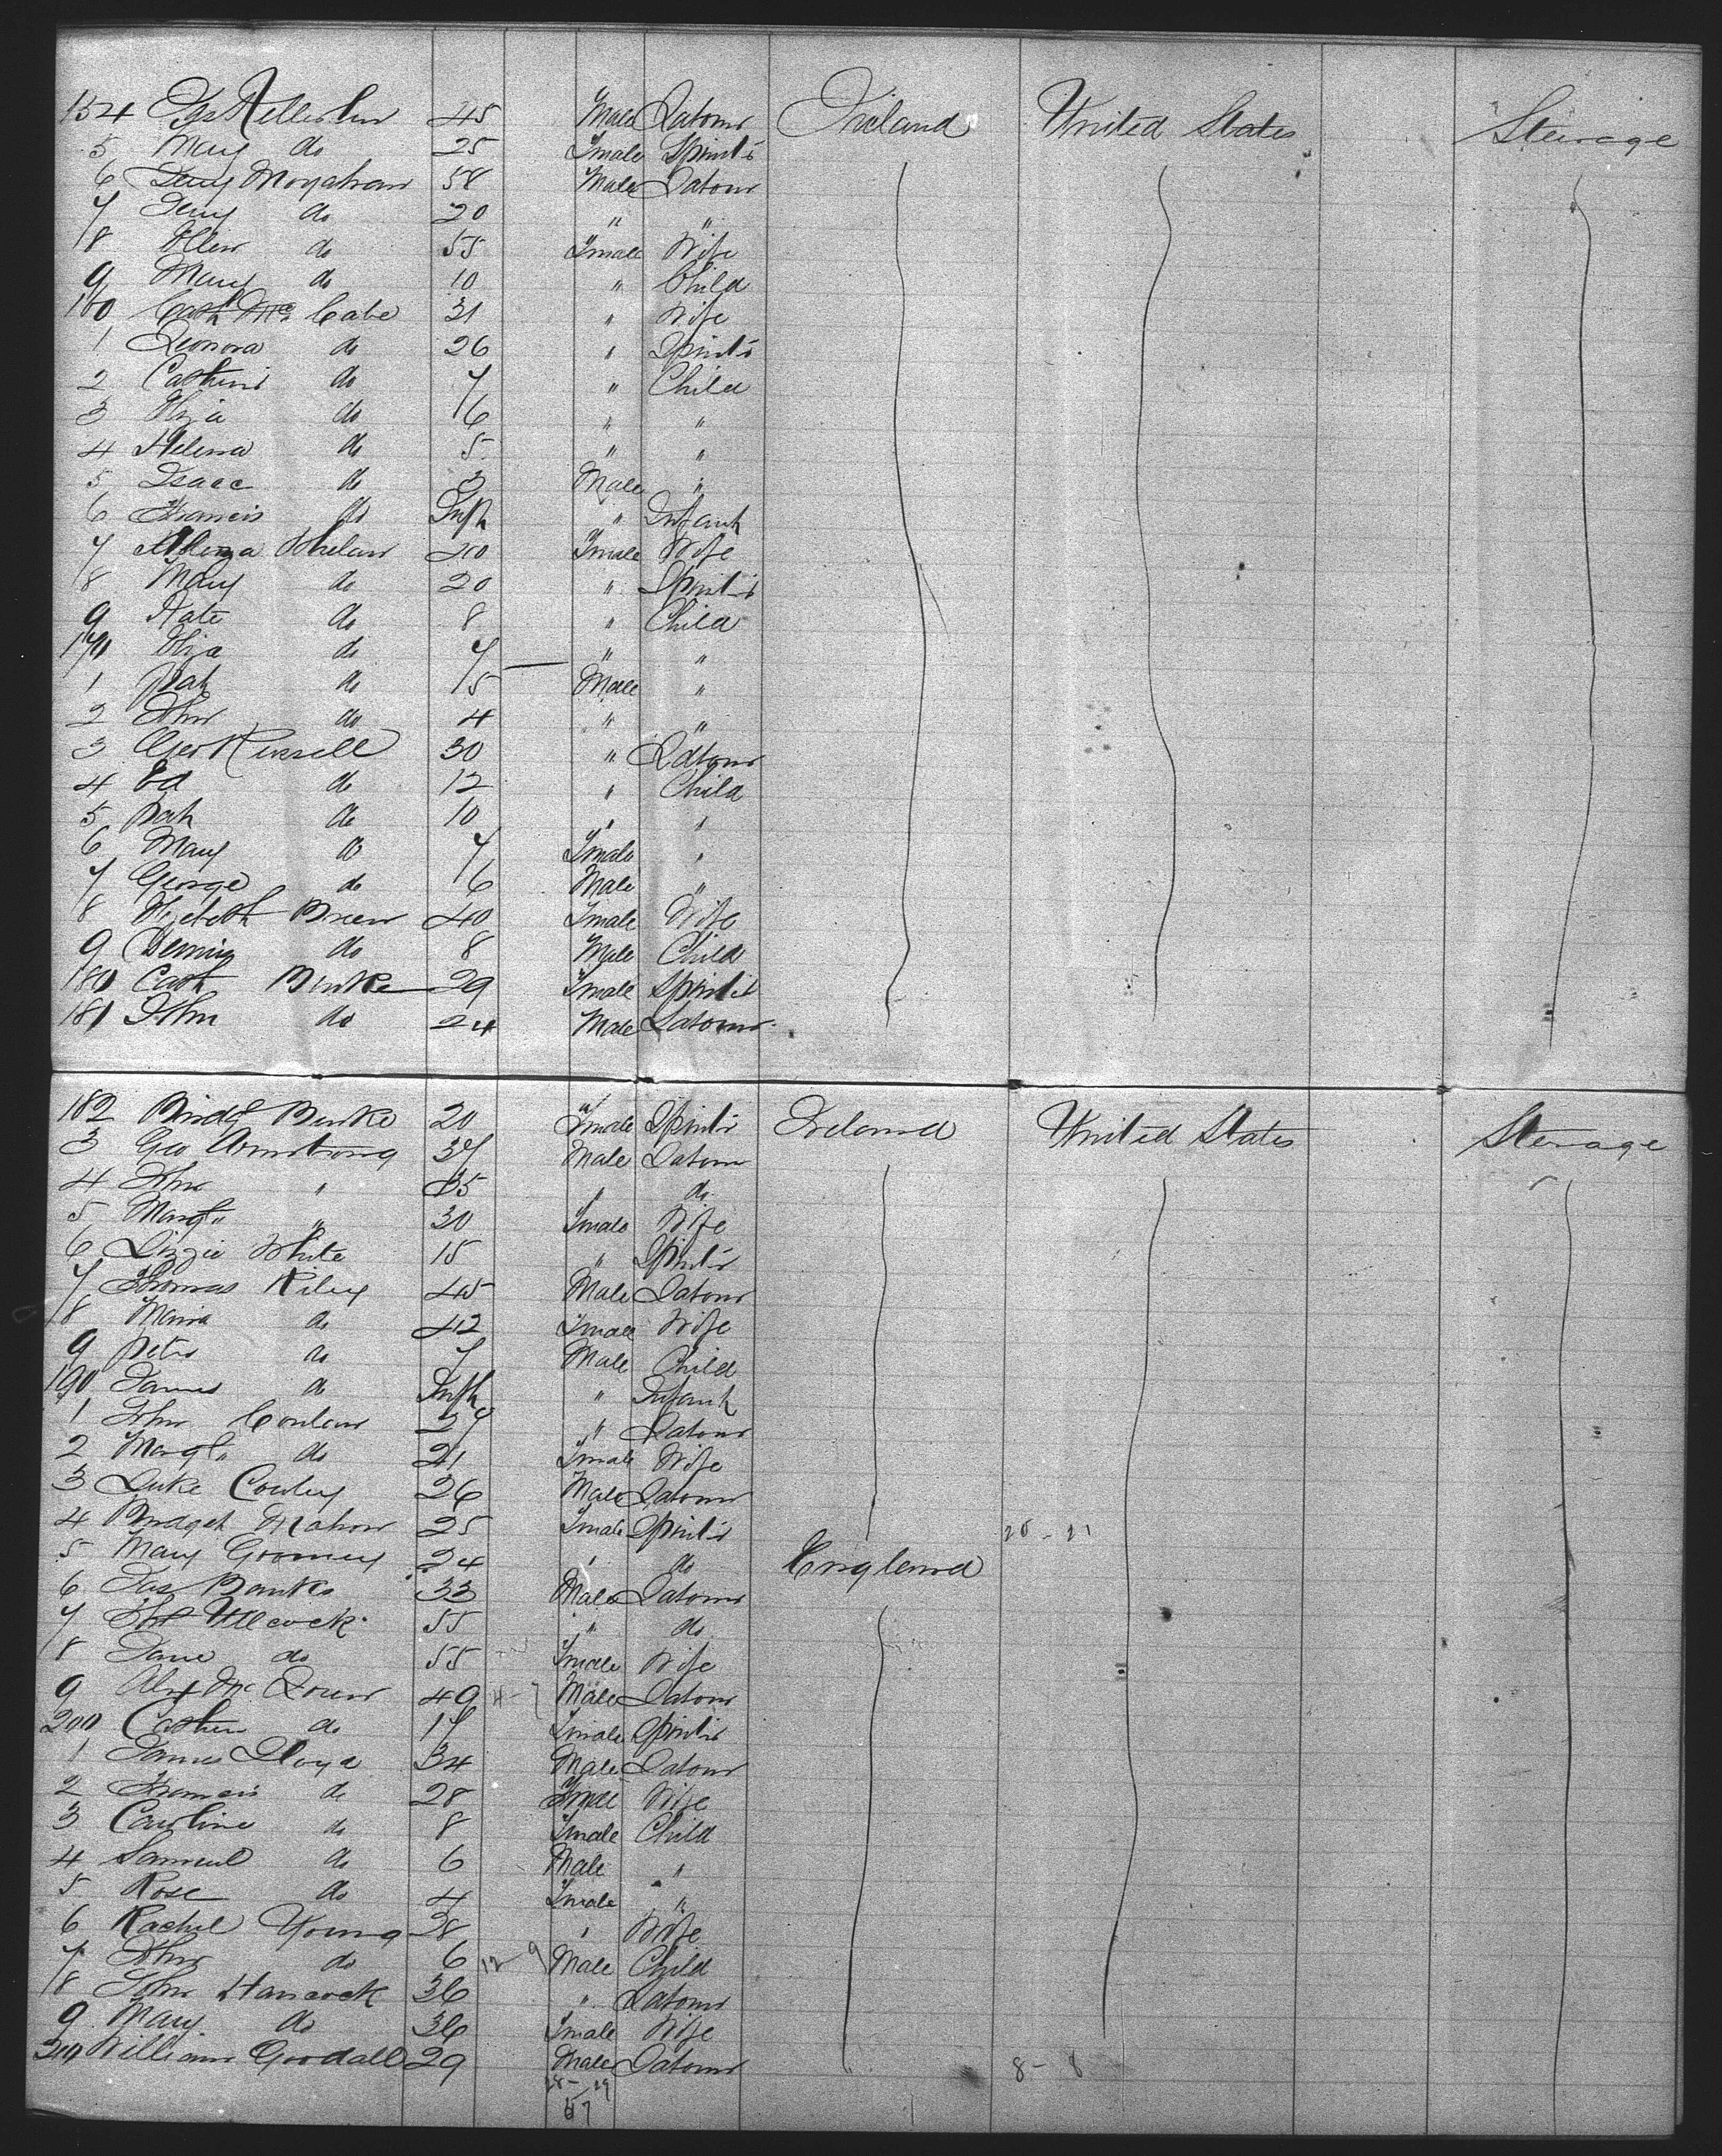 154 Kelleher 45 Male Laborer Ireland United States Steerage
5 Mary do 25 Fmale Spinst'r
6 Moynahan 58 Male Laborer
7 do 20 " "
8 Ellen do 55 Fmale Wife
9 Mary do 10 " Child
160 Cath Mc Cabe 31 " Wife
1 Leonora do 26 " Spinst'r
2 do 7 " Child
3 Eliza do 6 " "
4 Helena do 5 " "
5 Isaac do 3 Male "
6 Francis do Inft " Infant
7 Whelan 40 Fmale Wife
8 Mary do 20 " Spinst'r
9 Kate do 8 " Child
170 Eliza do 7 " "
1 Pat do 5 Male "
2 John do 4 " "
3 Geo Russell 30 " Laborer
4 Ed do 12 " Child
5 Pat do 10 " "
6 Mary do 7 Fmale "
7 George do 6 Male "
8 Elizabeth 40 Fmale Wife
9 Dennis do 8 Male Child
180 Cath Burke 29 Fmale Spinst'r
181 John do 24 Male Laborer
182 Bridgt Burke 20 Fmale Spinst'r Ireland United States Steerage
3 Geo Armstrong 37 Male Laborer
4 John " 35 " do
5 Margt " 30 Fmale Wife
6 Lizzie White 15 " Spinst'r
7 Thomas Riley 45 Male Laborer
8 Maria do 42 Fmale Wife
9 Peter do 7 Male Child
190 James do Inft " Infant
1 John Conlan 27 " Laborer
2 Margt do 21 Fmale Wife
3 Luke Cowley 26 Male Laborer
4 Bridget Mahon 25 Fmale Spinst'r
5 Mary 24 " do England
6 Jas Banks 33 Male Laborer
7 55 " do
8 Jane do 55 Fmale Wife
9 Alex Mc 49 Male Laborer
200 do 17 Fmale Spinst'r
1 James Lloyd 34 Male Laborer
2 Francis do 28 Fmale Wife
3 Caroline do 8 Fmale Child
4 Samuel do 6 Male "
5 Rose do 4 Fmale "
6 Rachel Young 38 " Wife
7 John do 6 Male Child
8 John Hancock 36 " Laborer
9 Mary do 36 Fmale Wife
210 William Goodall 29 Male Laborer 8 - 8
28 - 29
57